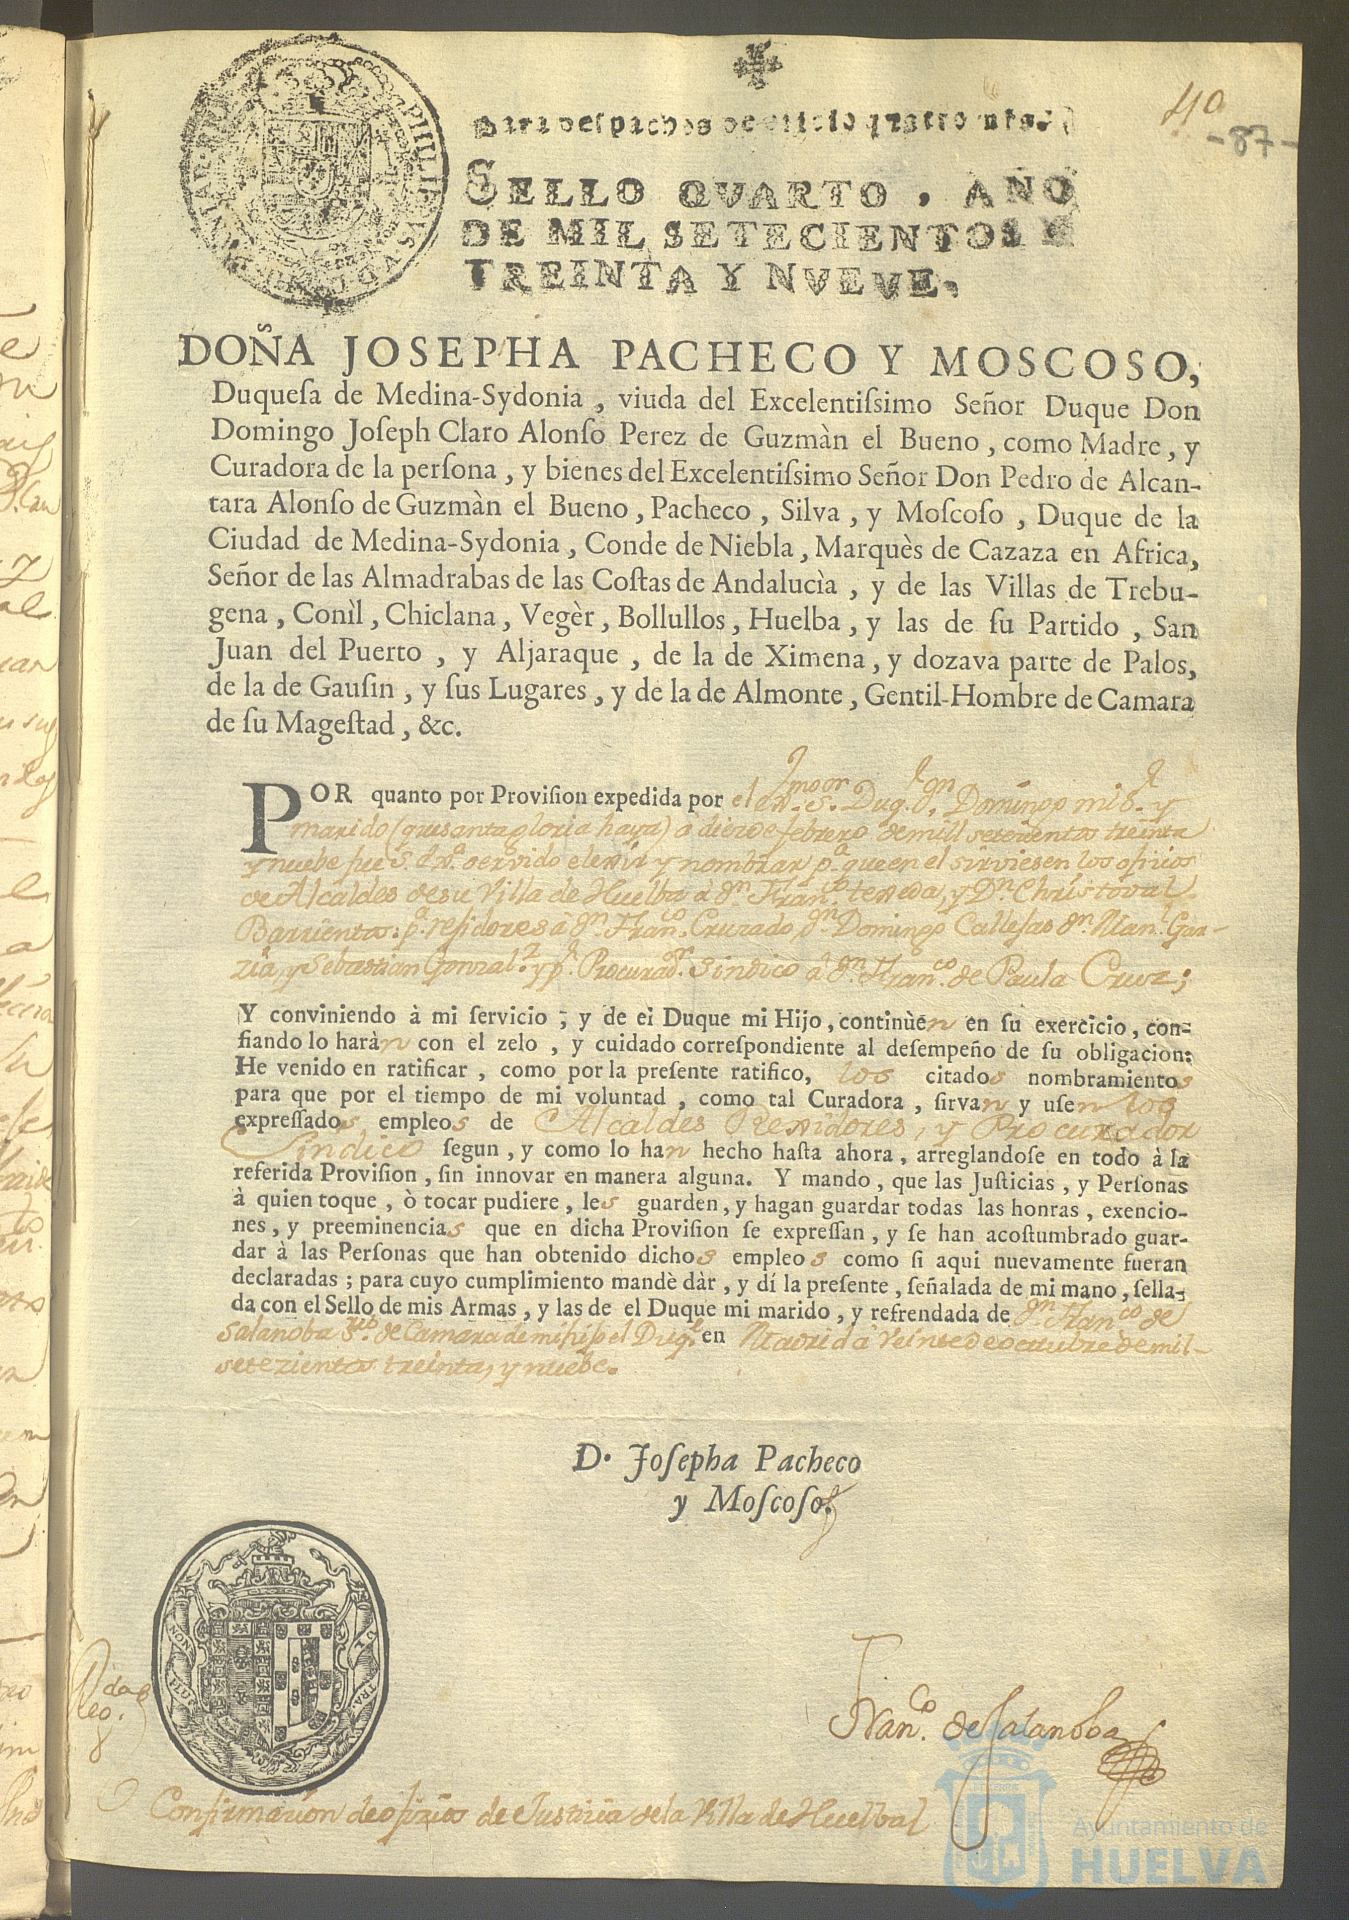 40
-87-
Para despachos de oficio quatro mrs.
SELLO QVARTO, AÑO
DE MIL SETECIENTOS Y
TREINTA Y NVEVE.
DOÑA JOSEPHA PACHECO Y MOSCOSO,
Duqueſa de Medina-Sydonia, viuda del Excelentiſsimo Señor Duque Don
Domingo Joſeph Claro Alonſo Perez de Guzmàn el Bueno, como Madre, y
Curadora de la perſona, y bienes del Excelentiſsimo Señor Don Pedro de Alcan-
tara Alonſo de Guzmàn el Bueno, Pacheco, Silva, y Moſcoſo, Duque de la
Ciudad de Medina-Sydonia, Conde de Niebla, Marquès de Cazaza en Africa,
Señor de las Almadrabas de las Coſtas de Andalucìa, y de las Villas de Trebu-
gena, Conìl, Chiclana, Vegèr, Bollullos, Huelba, y las de ſu Partido, San
Juan del Puerto, y Aljaraque, de la de Ximena, y dozava parte de Palos,
de la de Gauſin, y ſus Lugares, y de la de Almonte, Gentil-Hombre de Camara
de ſu Mageſtad, &c.
POR quanto por Proviſion expedida por el Sr. Duq.e dn. Domingo mi Sr. y
marido (que santa gloria haya) a diez de febrero de mill setezientos treinta
y nuebe fue S. servido elexir y nombrar pa. que en el sirviesen los ofizios
de Alcaldes de su Villa de Huelba à dn. Franco. texeda, y Dn. Christoval
Barrientos: pa. rejidores à dn. Franco. Cruzado, dn. Domingo Callejas dn. Manl. Gar-
zia, y Sebastian Gonzalz. y pr. Procuradr. Sindico à dn. Franco. de Paula Cruz;
Y conviniendo à mi ſervicio, y de el Duque mi Hijo, continùen en ſu exercicio, con-
fiando lo haràn con el zelo, y cuidado correſpondiente al deſempeño de ſu obligacion:
He venido en ratificar, como por la preſente ratifico, los citados nombramientos
para que por el tiempo de mi voluntad, como tal Curadora, ſirvan y uſen los
expreſſados empleos de Alcaldes Rexidores, y Procurador
Sindico ſegun, y como lo han hecho haſta ahora, arreglandoſe en todo à la
referida Proviſion, ſin innovar en manera alguna. Y mando, que las Juſticias, y Perſonas
à quien toque, ò tocar pudiere, les guarden, y hagan guardar todas las honras, exencio-
nes, y preeminencias que en dicha Proviſion ſe expreſſan, y ſe han acoſtumbrado guar-
dar à las Perſonas que han obtenido dichos empleos como ſi aqui nuevamente fueran
declaradas; para cuyo cumplimiento mandè dàr, y dí la preſente, ſeñalada de mi mano, ſella-
da con el Sello de mis Armas, y las de el Duque mi marido, y refrendada de dn. Franco. de
Salanoba Srio. de Camara de mi hijo el Duqe. en Madrid à veinte de octubre de mil
setezientos treinta, y nuebe.
D. Joſepha Pacheco
y Moſcoſo.
NON PLUS ULTRA
Franco. de Salanoba
Confirmazion de ofizios de Justizia de la Villa de Huelba
Ayuntamiento de
HUELVA